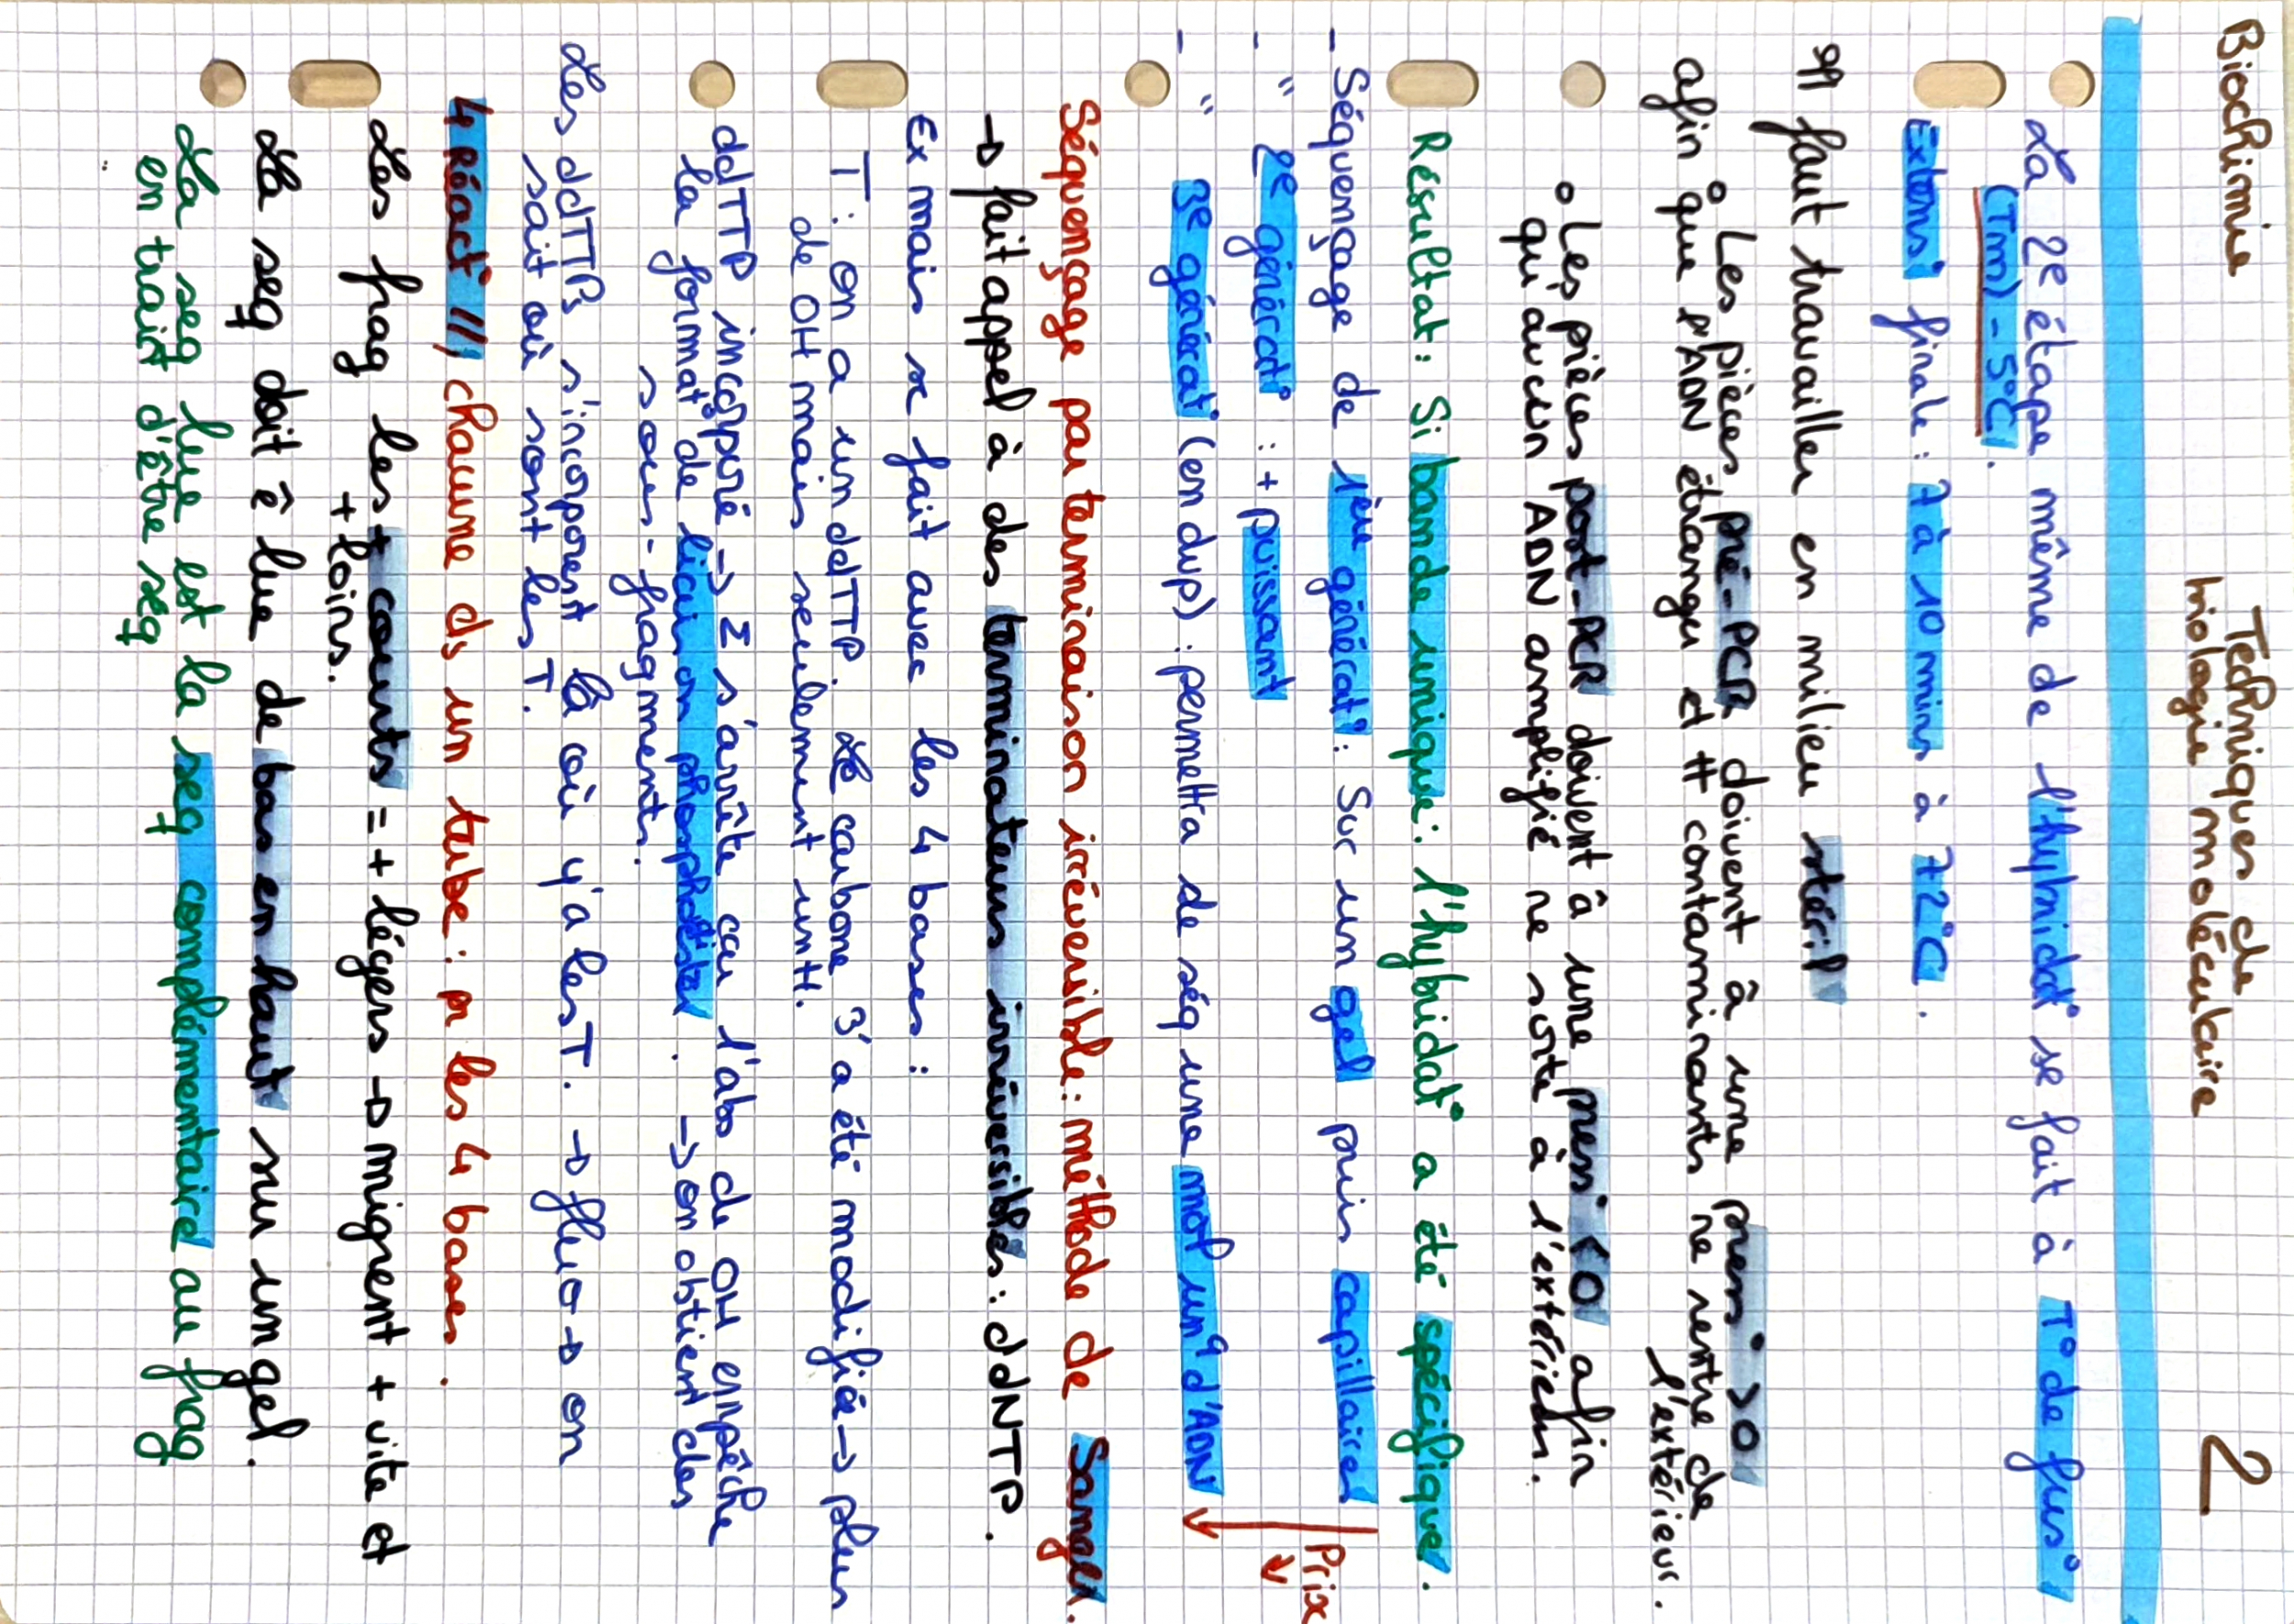 Biochimie
Techniques de
biologie moléculaire
2
La 2e étape même de l'hybridat° se fait à T° de fus°
(Tm) - 5°C.
Extens° finale : 7 à 10 mins à 72°C.
Il faut travailler en milieu stéril
° Les pièces pré-PCR doivent à une press° > 0
afin que l'ADN étranger et # contaminants ne rentre de
l'extérieur.
° Les pièces post-PCR doivent à une press° < 0 afin
qu'aucun ADN amplifié ne sorte à l'extérieur.
Résultat : Si bande unique : l'hybridat° a été spécifique.
- Séquençage de 1ère générat° : Sur un gel puis capillaires
- " 2e générat° : + puissant
- " 3e générat° (en dvp) : permettra de séq une mol unq d'ADN
Prix ↓
Séquençage par terminaison irréversible : méthode de Sanger.
→ fait appel à des terminateurs irréversibles : ddNTP.
Ex mais se fait avec les 4 bases :
T : on a un ddTTP. Le carbone 3' a été modifié → plus
de OH mais seulement un H.
ddTTP incorporé → Σ s'arrête car l'abs de OH empêche
la format° de liaison phosphodister. → on obtient des
sous-fragments.
Les ddTTPs s'incorporent là où y'a les T. → fluo → on
sait où sont les T.
4 Réact° //, chacune ds un tube : pr les 4 bases.
Les frag les + courts = + légers → migrent + vite et
+ loins.
La seq doit ê lue de bas en haut sur un gel.
La seq lue est la seq complémentaire au frag
en train d'être seq